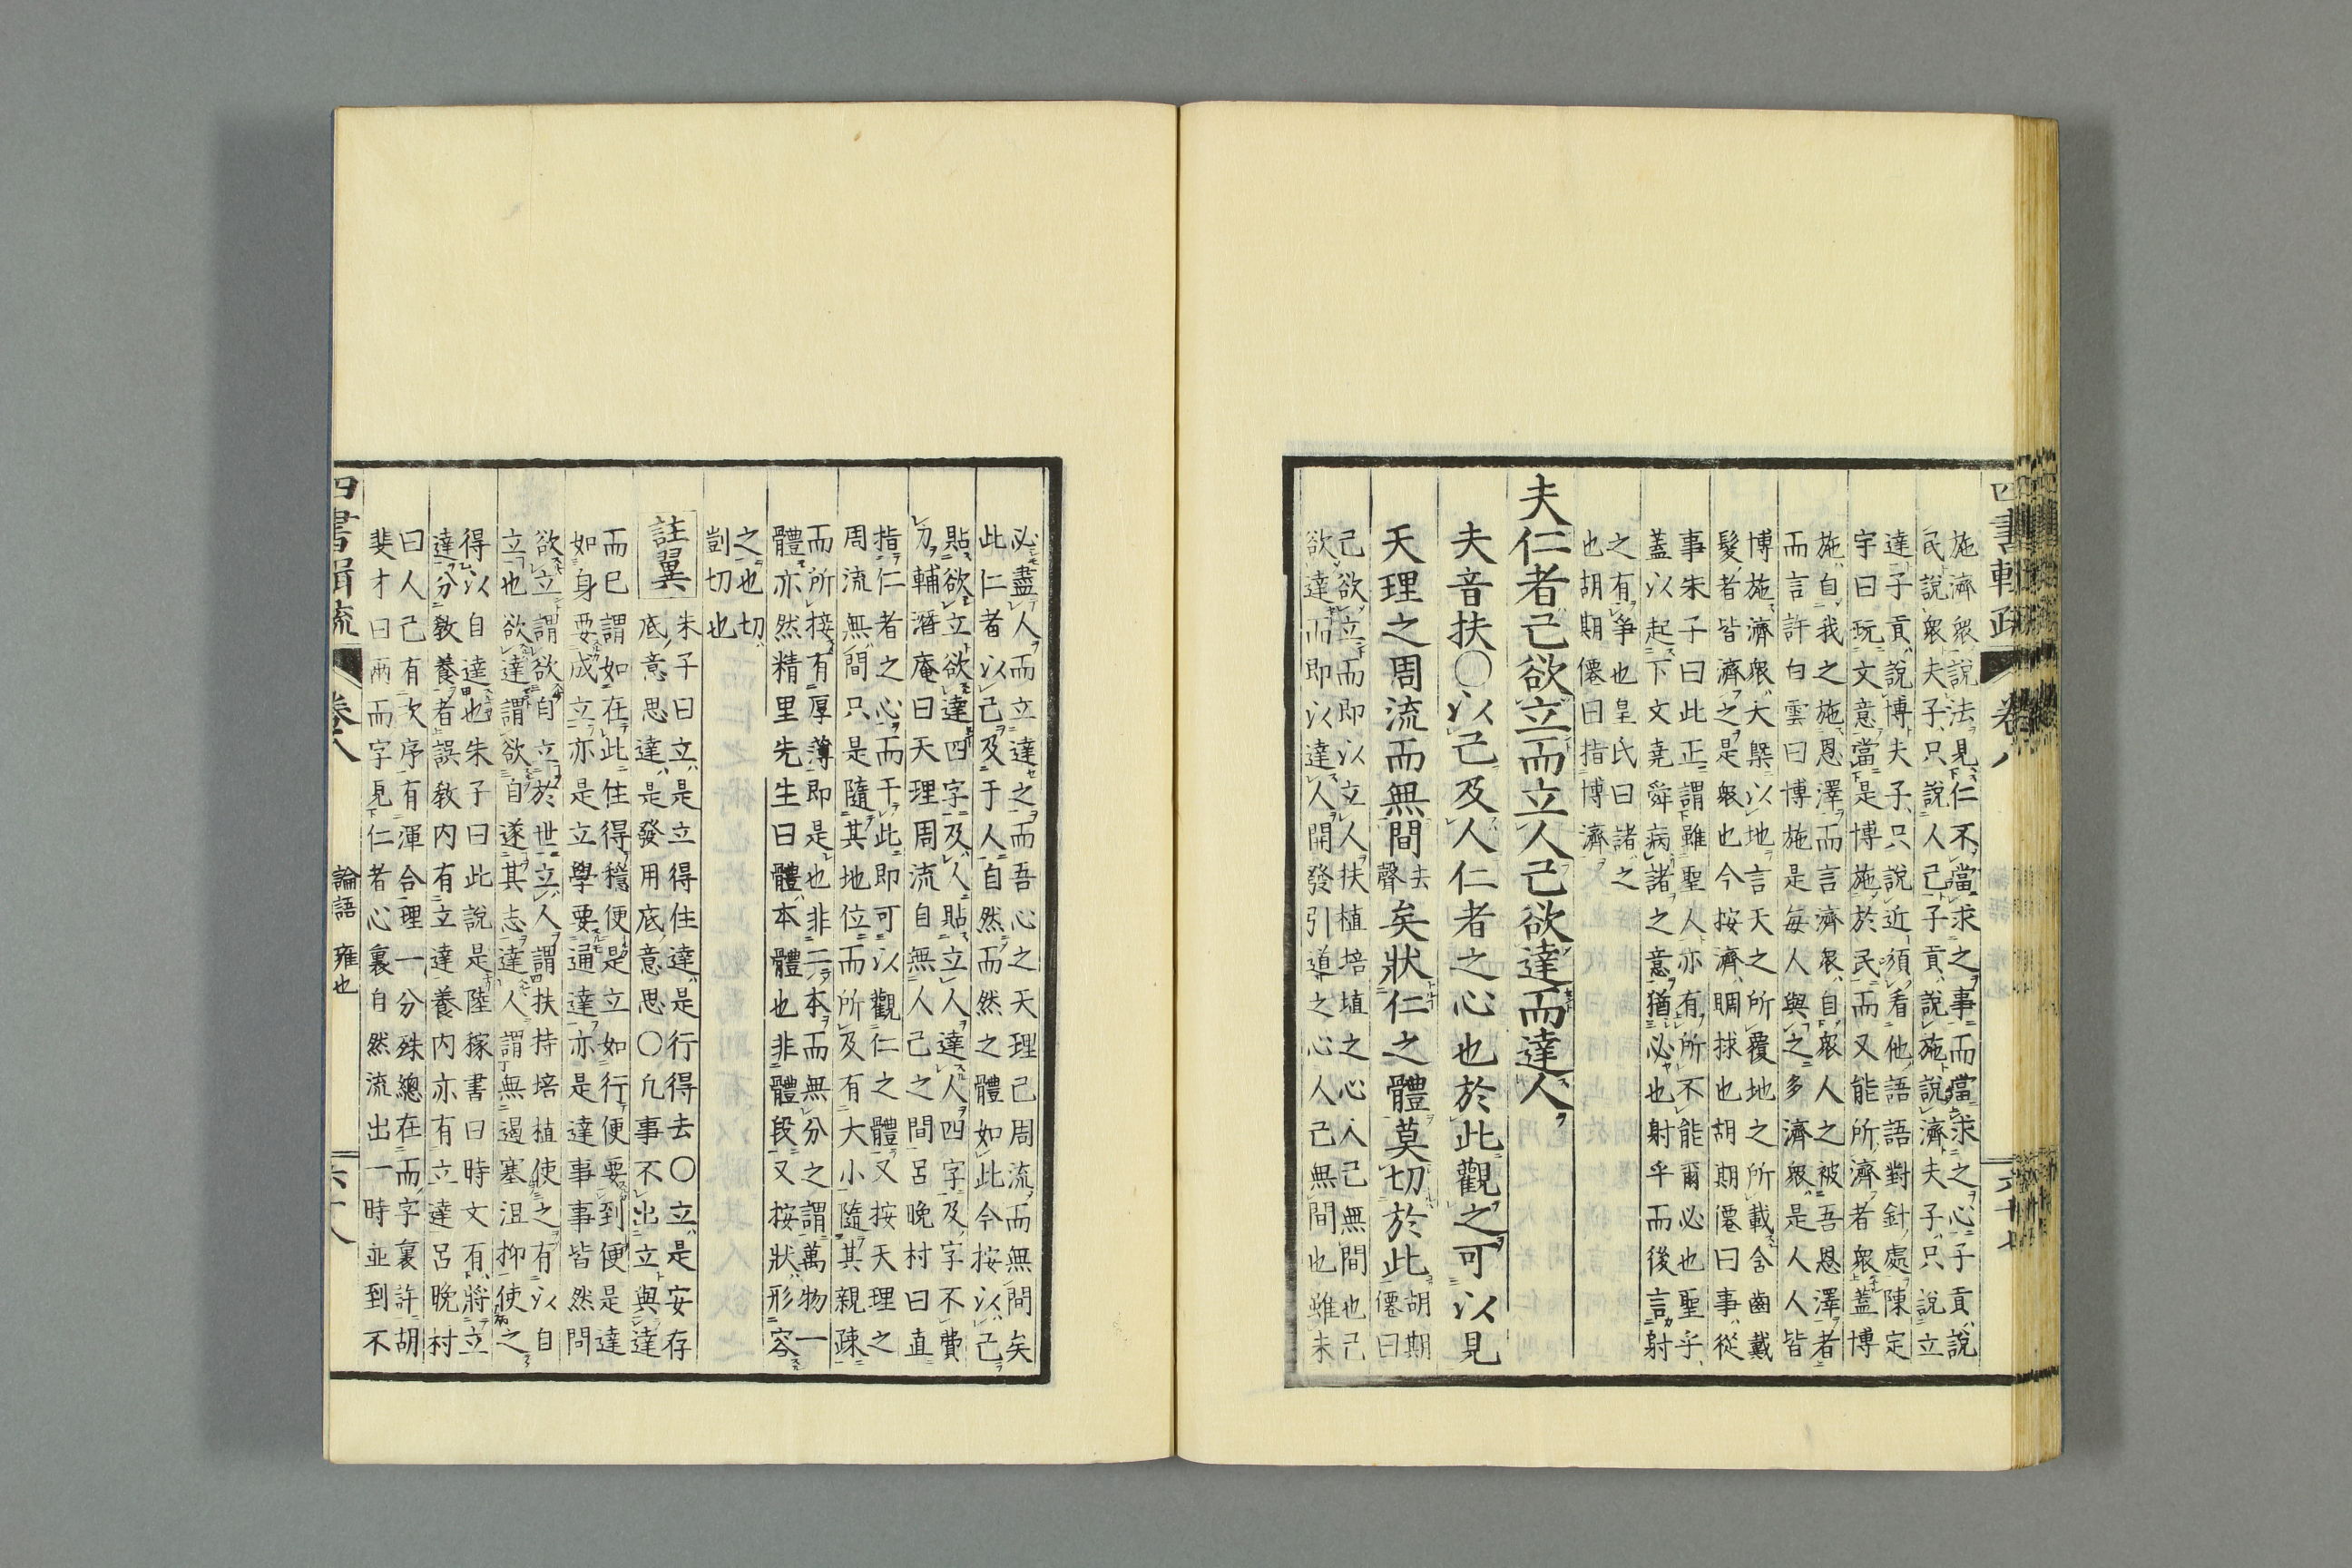 施濟衆說法見仁不當求之事而當求之心子貢說
民說衆夫子只說人己子貢說施說濟夫子只說立
達子貢說博夫子只說近須看他語語對針處陳定
宇曰玩文意當是博施於民而又能所濟者衆蓋博
施自我之施恩澤而言濟衆自衆人之被吾恩澤者
而言許白雲曰博施是每人與之多濟衆是人人皆
博施濟衆大槩以地言天之所覆地之所載含齒戴
髮者皆濟之是衆也今按濟賙捄也胡期僊曰事從
事朱子曰此正謂雖聖人亦有所不能爾必也聖乎
蓋以起下文堯舜病諸之意猶必也射乎而後言射
之有爭也皇氏曰諸之
也胡期僊曰指博濟
夫仁者己欲立而立人己欲達而達人
夫音扶○以己及人仁者之心也於此觀之可以見
天理之周流而無間去聲矣狀仁之體莫切於此胡期僊曰
己欲立而即以立人扶植培埴之心人己無間也己
欲達而即以達人開發引道之心人己無間也雖未
四書輯疏 卷八 六十七
必盡人而立達之而吾心之天理已周流而無間矣
此仁者以己及于人自然而然之體如此今按以己
貼欲立欲達四字及人貼立人達人四字及字不費
力輔潛庵曰天理周流自無人己之間呂晚村曰直
指仁者之心而干此即可以觀仁之體又按天理之
周流無間只是隨其地位而所及有大小隨其親疎
而所接有厚薄即是也非二本而無分之謂萬物一
體亦然精里先生曰體本體也非體段又按狀形容
之也切
剴切也
註翼 朱子曰立是立得住達是行得去○立是安存
底意思達是發用底意思○凡事不出立與達
而已謂如在此住得穩便是立如行便要到便是達
如身要成立亦是立學要通達亦是達事事皆然問
欲立謂欲自立於世立人謂扶持培植使之有以自
立也欲達謂欲自遂其志達人謂無遏塞沮抑使之
得以自達也朱子曰此說是陸稼書曰時文有將立
達分敎養者誤敎內有立達養內亦有立達呂晚村
曰人己有次序有渾合理一分殊總在而字裏許胡
斐才曰兩而字見仁者心裏自然流出一時並到不
四書輯疏 卷八 論語 雍也 六十八